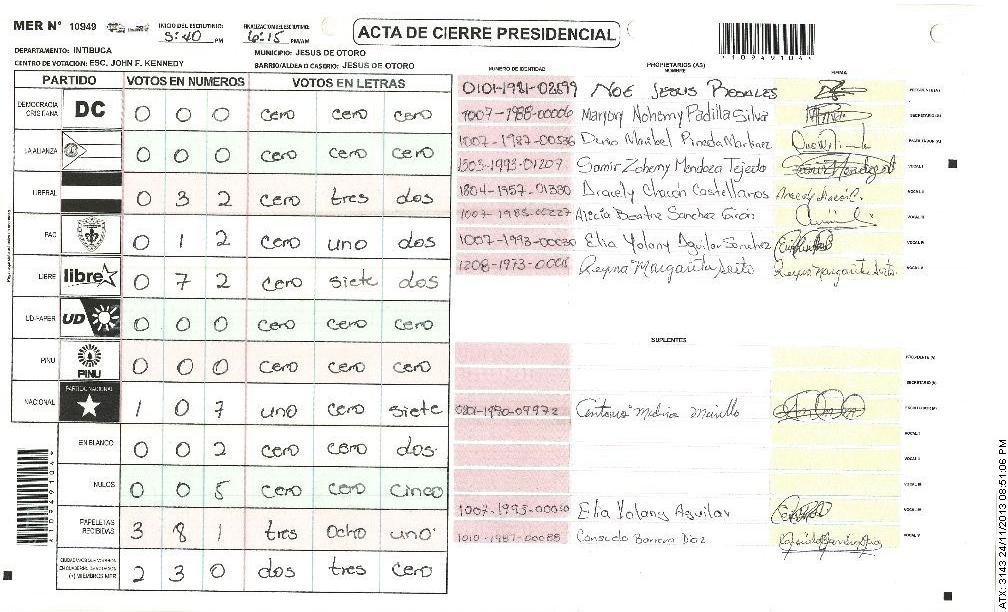 MER N° 10949
INICIO DEL ESCRUTINIO: 5:40 PM
FINALIZACION DEL ESCRUTINIO: 6:15 PM/AM
ACTA DE CIERRE PRESIDENCIAL
*10949104*
DEPARTAMENTO: INTIBUCA
MUNICIPIO: JESUS DE OTORO
CENTRO DE VOTACION: ESC. JOHN F. KENNEDY
BARRIO/ALDEA O CASERIO: JESUS DE OTORO
PARTIDO VOTOS EN NUMEROS VOTOS EN LETRAS
DEMOCRACIA CRISTIANA DC 0 0 0 cero cero cero
LA ALIANZA 0 0 0 cero cero cero
LIBERAL 0 3 2 cero tres dos
PAC 0 1 2 cero uno dos
LIBRE libre 0 7 2 cero siete dos
UD-FAPER UD 0 0 0 cero cero cero
PINU PINU 0 0 0 cero cero cero
NACIONAL PARTIDO NACIONAL 1 0 7 uno cero siete
EN BLANCO 0 0 2 cero cero dos
NULOS 0 0 5 cero cero cinco
PAPELETAS RECIBIDAS 3 8 1 tres ocho uno
(+) MIEMBROS MER 2 3 0 dos tres cero
PROPIETARIOS (AS)
NUMERO DE IDENTIDAD NOMBRE FIRMA
NOE JESUS ROSALES PRESIDENTE(A)
1007-1988-00006 Marjory Nohemy Padilla Silva SECRETARIO (A)
1007-1987-00536 Maribel Pineda Martinez
1503-1993-01207 Samir Zohemy Mendoza Tejedo VOCAL I
1804-1957-01380 Aracely Chacon Castellanos VOCAL II
Alicia Beatriz Sanchez Giron VOCAL III
Elia Yolany Aguilar Sanchez VOCAL IV
Reyna Margarita VOCAL V
SUPLENTES
PRESIDENTE (A)
SECRETARIO (A)
Murillo
VOCAL I
VOCAL II
VOCAL III
Elia Yolany Aguilar VOCAL IV
Consuelo Barrera Diaz VOCAL V
ATX: 3143 24/11/2013 08:51:06 PM